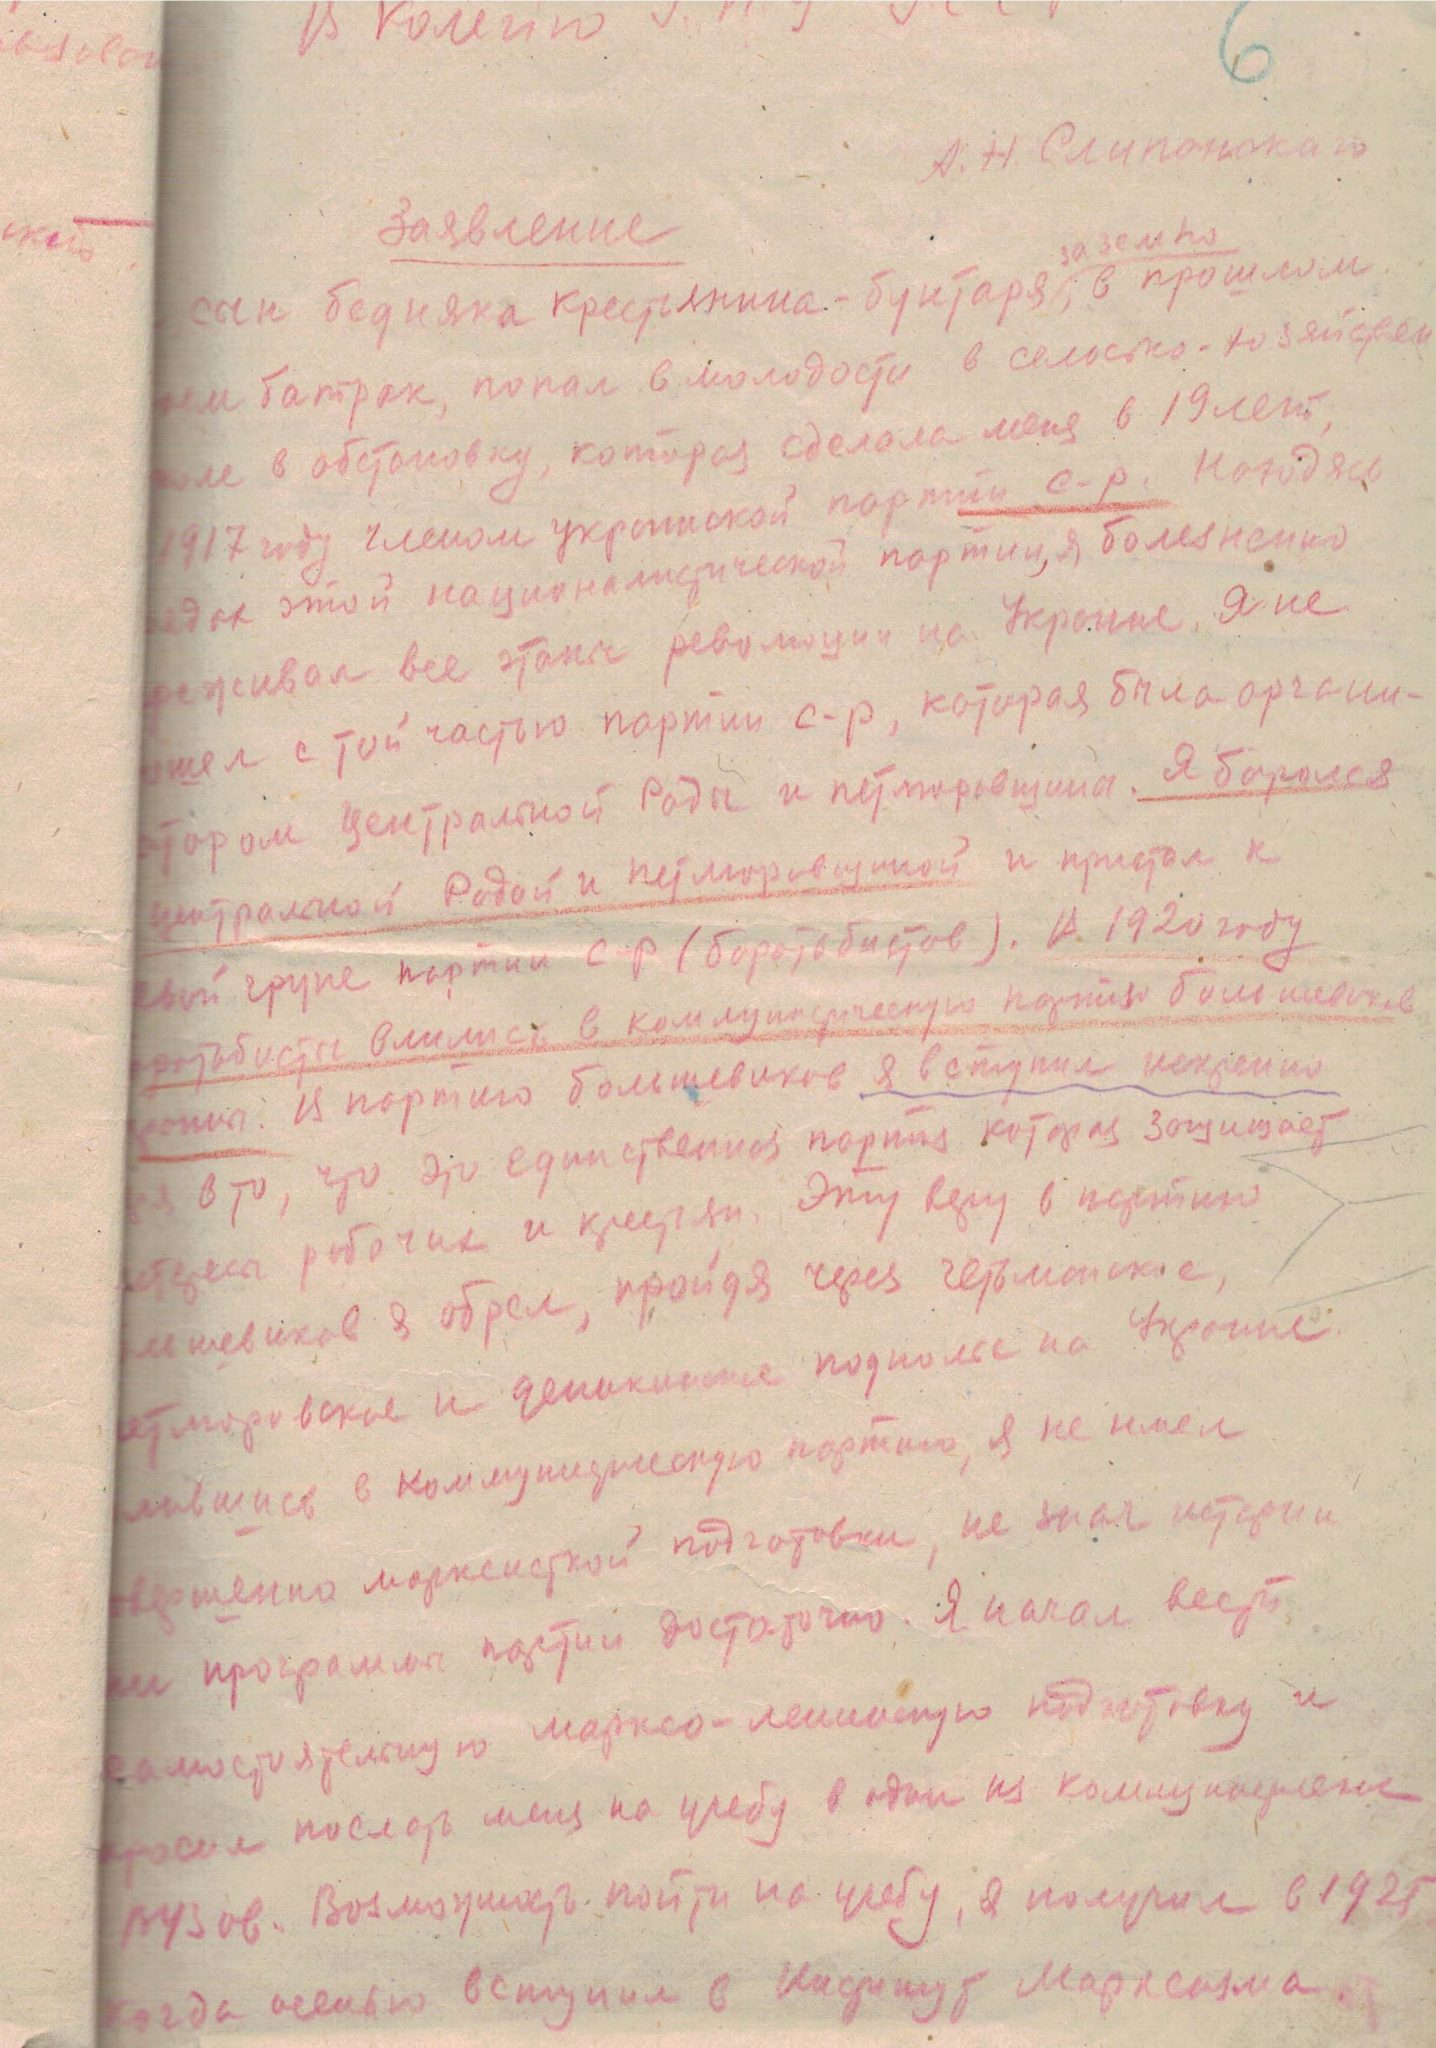 6
В Колегию
А. Н. Слипанского
Заявление
за землю
сын бедняка крестьянина-бунтаря, в прошлом
батрак, попал в молодости в сельско-хозяйствен
в обстановку, которая сделала меня в 19 лет,
1917 году членом украинской партии с-р. Находясь
этой националистической партии, я болезненно
все этапы революции на Украине. Я не
с той частью партии с-р, которая была органи-
Центральной Рады и петлюровщины. Я боролся
центральной Радой и петлюровщиной и пристал к
групе партии С-Р (боротьбистов). В 1920 году
влились в коммунистическую партию большевиков
В партию большевиков я вступил искренно
в то, что это единственная партия которая защищает
рабочих и крестьян. Эту веру в партию
я обрел, пройдя через гетьманское,
и деникинское подполье на Украине.
в коммунистическую партию, я не имел
марксисткой подготовки, не знал истории
программы партии достаточно. Я начал вести
самостоятельную марксо-ленинскую подготовку и
просил послать меня на учебу в один из коммунистических
ВУЗов. Возможность пойти на учебу, я получил в 1925
когда осенью вступил в Институт Марксизма.